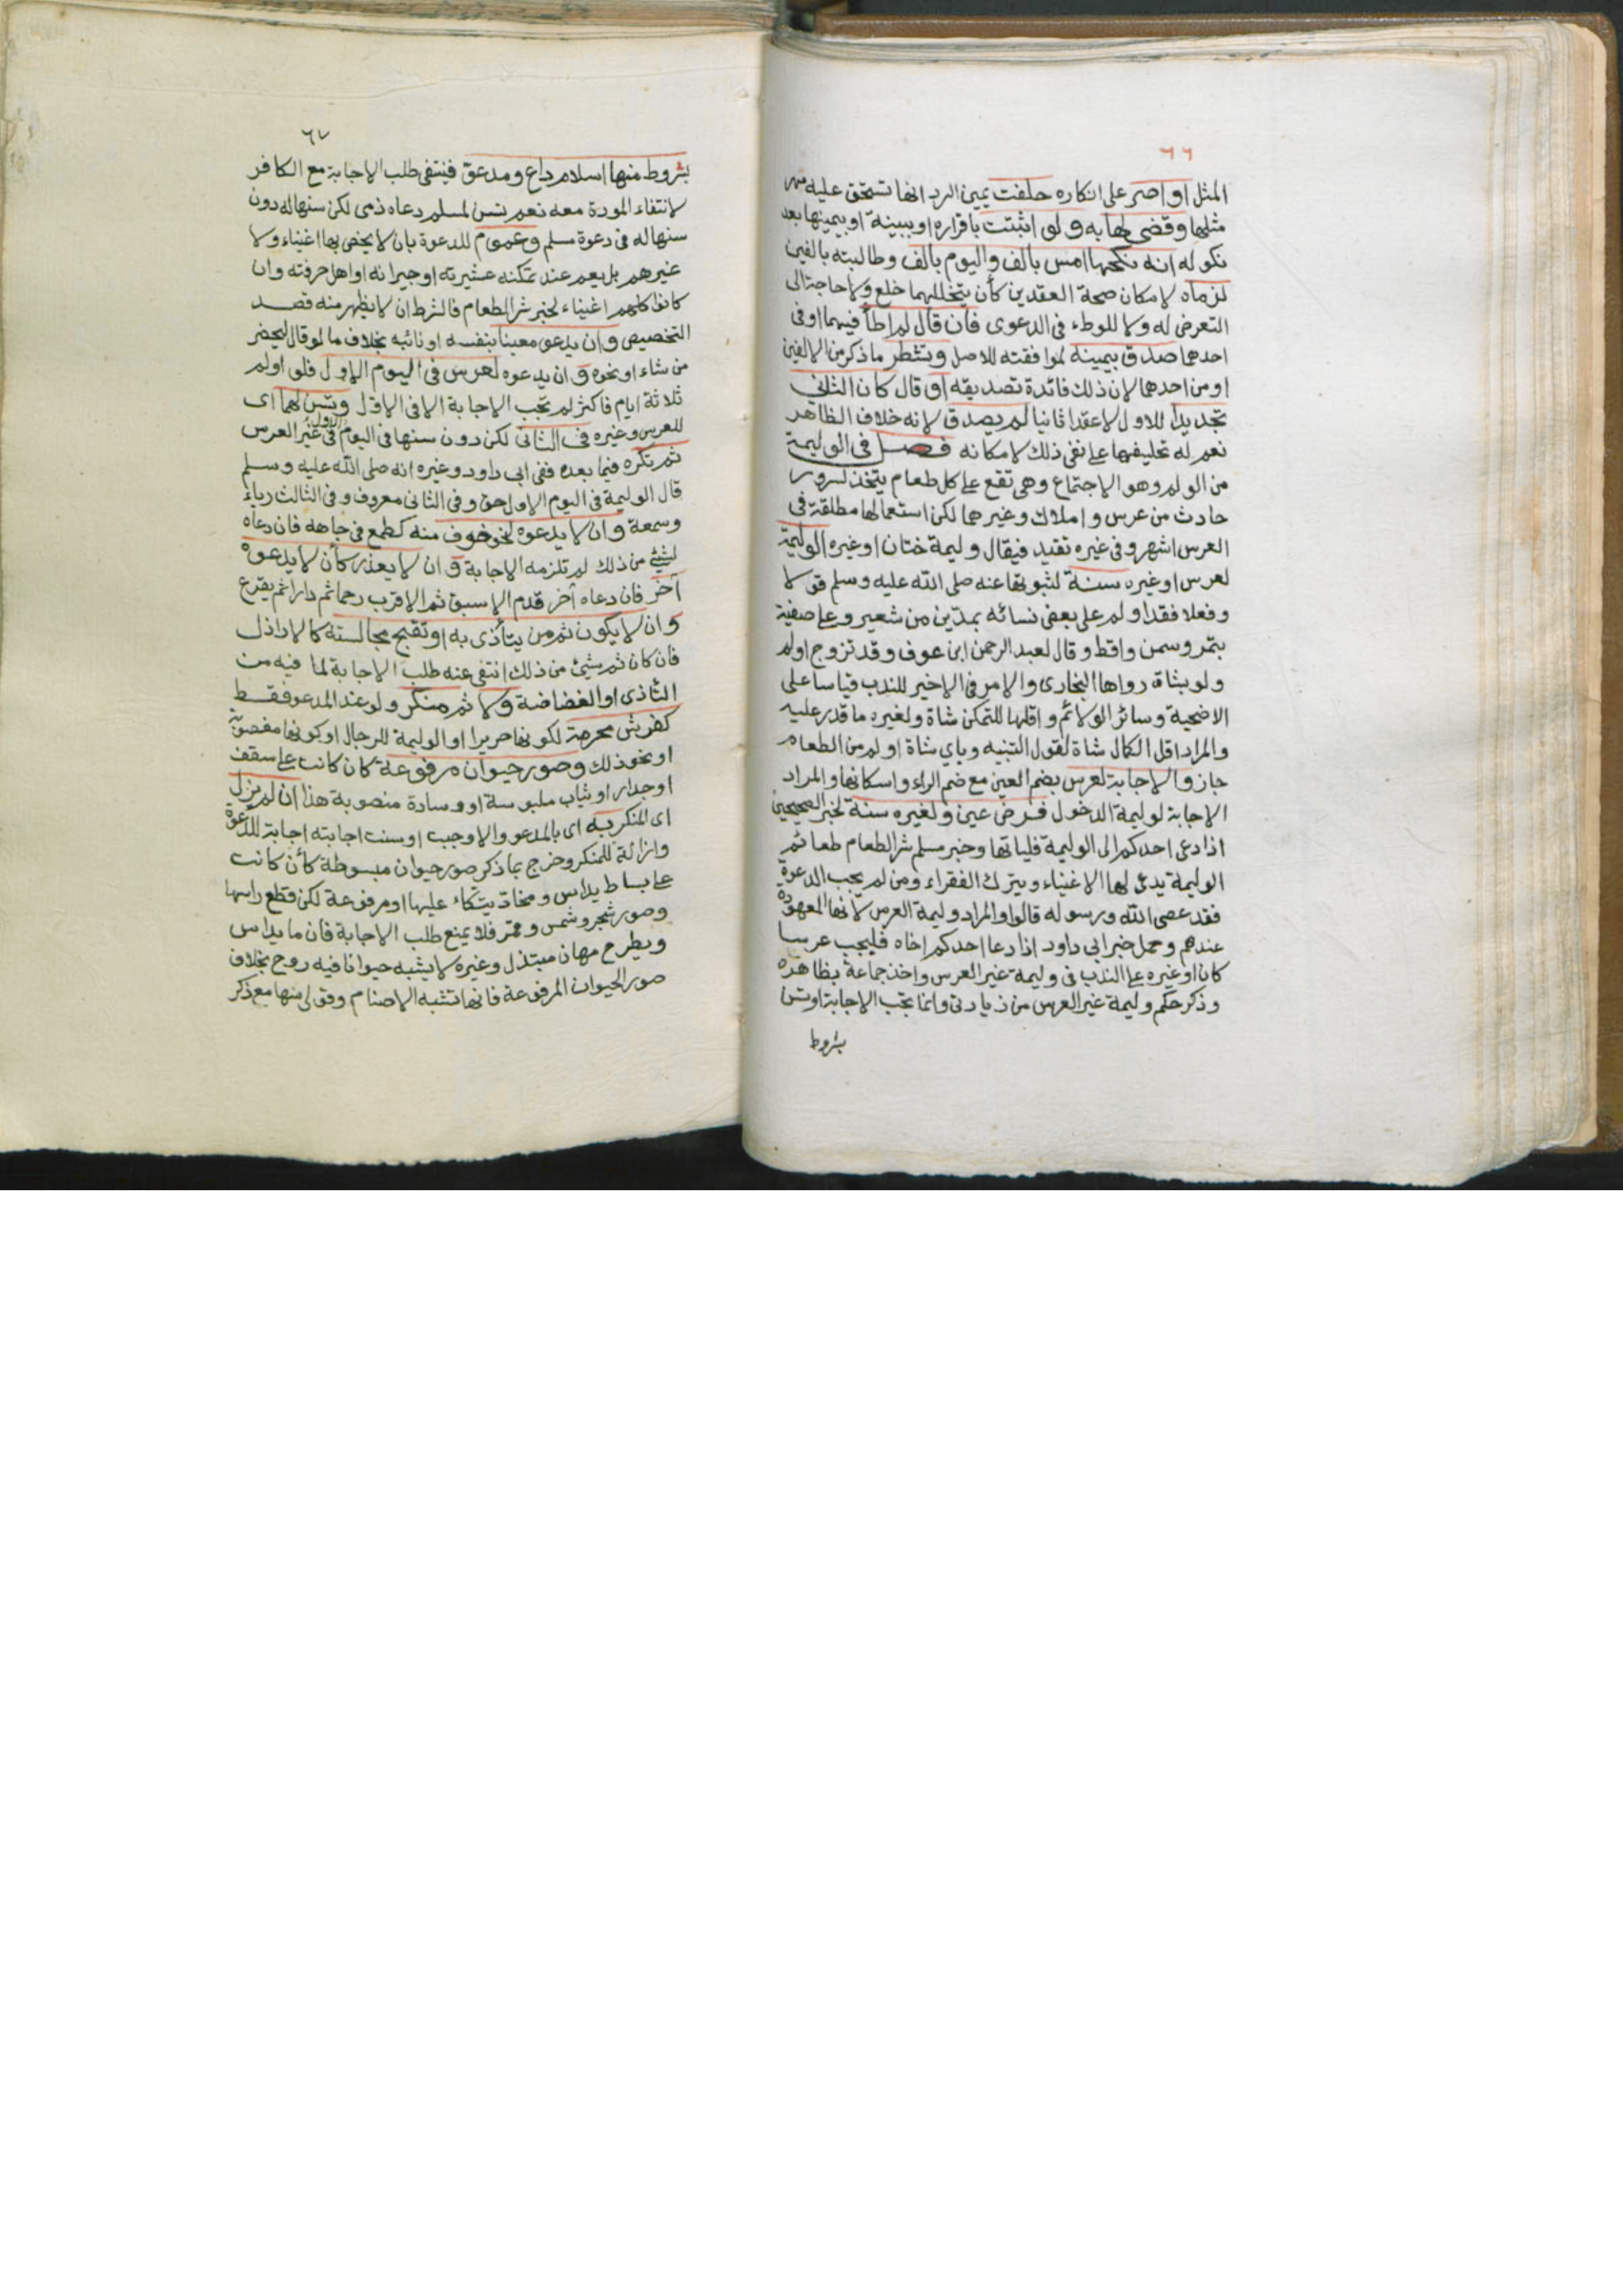 ٦٦
المثل او اصر على انكاره حلفت يمين الرد انها تستحق عليه مهر
مثلها وقضى لها به ولو اثبتت باقراره او ببينة او بيمينها بعد
نكوله انه نكحها امس بالف واليوم بالف وطالبته بالفين
لزماه لامكان صحة العقدين كأن يتخللهما خلع ولا حاجة الى
التعرض له ولا للوطء في الدعوى فان قال لم اطأ فيهما او في
احدهما صدق بيمينه لموافقته للاصل وتشطر ما ذكر من الالفين
او من احدهما لان ذلك فائدة تصديقه او قال كان الثاني
تجديدا للاول لا عقدا ثانيا لم يصدق لانه خلاف الظاهر
نعم له تحليفها على نفي ذلك لامكانه فصل في الوليمة
من الولم وهو الاجتماع وهي تقع على كل طعام يتخذ لسرور
حادث من عرس و املاك وغيرها لكن استعمالها مطلقة في
العرس اشهر وفي غيره تقيد فيقال وليمة ختان او غيره الوليمة
لعرس او غيره سنة لثبوتها عنه صلى الله عليه وسلم قولا
وفعلا فقد اولم على بعض نسائه بمدين من شعير وعلى صفية
بتمر وسمن واقط وقال لعبد الرحمن ابن عوف وقد تزوج اولم
ولو بشاة رواها البخارى والامر في الاخير للندب قياسا على
الاضحية وسائر الولائم واقلها للتمكن شاة ولغيره ما قدر عليه
والمراد اقل الكمال شاة لقول التنبيه وباي شاة او لم من الطعام
جاز والاجابة لعرس بضم العين مع ضم الراء واسكانها والمراد
الاجابة لوليمة الدخول فرض عين ولغيره سنة لخبر الصحيحين
اذا دعى احدكم الى الوليمة فلياتها وخبر مسلم شر الطعام طعام
الوليمة يدعى لها الاغنياء ويترك الفقراء ومن لم يجب الدعوة
فقد عصى الله ورسوله قالوا والمراد وليمة العرس لانها المعهودة
عندهم وحمل خبر ابى داود اذا دعا احدكم اخاه فليجب عرسا
كان او غيره على الندب في وليمة غير العرس واخذ جماعة بظاهره
وذكر حكم وليمة غير العرس من زيادتي وانما تجب الاجابة او تسن
بشروط
٦٧
بشروط منها اسلام داع ومدعو فينتفى طلب الاجابة مع الكافر
لانتفاء المودة معه نعم تسن لمسلم دعاه ذمى لكن سنها له دون
سنها له في دعوة مسلم وعموم للدعوة بان لا يخص بها اغنياء ولا
غيرهم بل يعم عند تمكنه عشيرته او جيرانه او اهل حرفته وان
كانوا كلهم اغنياء لخبر شر الطعام فالشرط ان لا يظهر منه قصد
التخصيص وان يدعو معينا بنفسه او نائبه بخلاف ما لو قال ليحضر
من شاء او نحوه وان يدعوه لعرس في اليوم الاول فلو اولم
ثلاثة ايام فاكثر لم تجب الاجابة الا في الاول وتسن لهما اى
للعرس وغيره في الثاني لكن دون سنها في اليوم الاول في غير العرس
ثم تكره فيما بعده ففي ابى داود وغيره انه صلى الله عليه وسلم
قال الوليمة في اليوم الاول حق وفي الثاني معروف وفي الثالث رياء
وسمعة وان لا يدعوه لنحو خوف منه كطمع في جاهه فان دعاه
لشيئ من ذلك لم تلزمه الاجابة وان لا يعذر كأن لا يدعوه
آخر فان دعاه آخر قدم الاسبق ثم الاقرب رحما ثم دارا ثم يقرع
وان لا يكون ثم من يتأذى به او تقبح مجالسته كالاراذل
فان كان ثم شيئ من ذلك انتفى عنه طلب الاجابة لما فيه من
التأذى او الغضاضة ولا ثم منكر ولو عند المدعو فقط
كفرش محرمة لكونها حريرا او الوليمة للرجال او كونها مغصوبة
او نحو ذلك وصور حيوان مرفوعة كان كانت على سقف
او جدار او ثياب ملبوسة او وسادة منصوبة هذا ان لم يزل
اى المنكر به اى بالمدعو والا وجبت او سنت اجابته اجابة للدعوة
وازالة للمنكر وخرج بما ذكر صور حيوان مبسوطة كأن كانت
على بساط يداس ومخاد يتكاء عليها او مرفوعة لكن قطع راسها
وصور شجر وشمس وقمر فلا يمنع طلب الاجابة فان ما يداس
ويطرح مهان مبتذل وغيره لا يشبه حيوانا فيه روح بخلاف
صور الحيوان المرفوعة فانها تشبه الاصنام وقولى منها مع ذكر